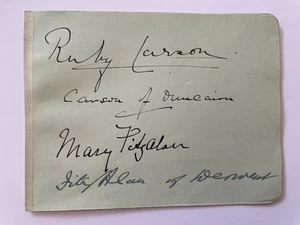 Ruby Carson.
Carson of Duncairn
Mary FitzAlan
FitzAlan of Derwent